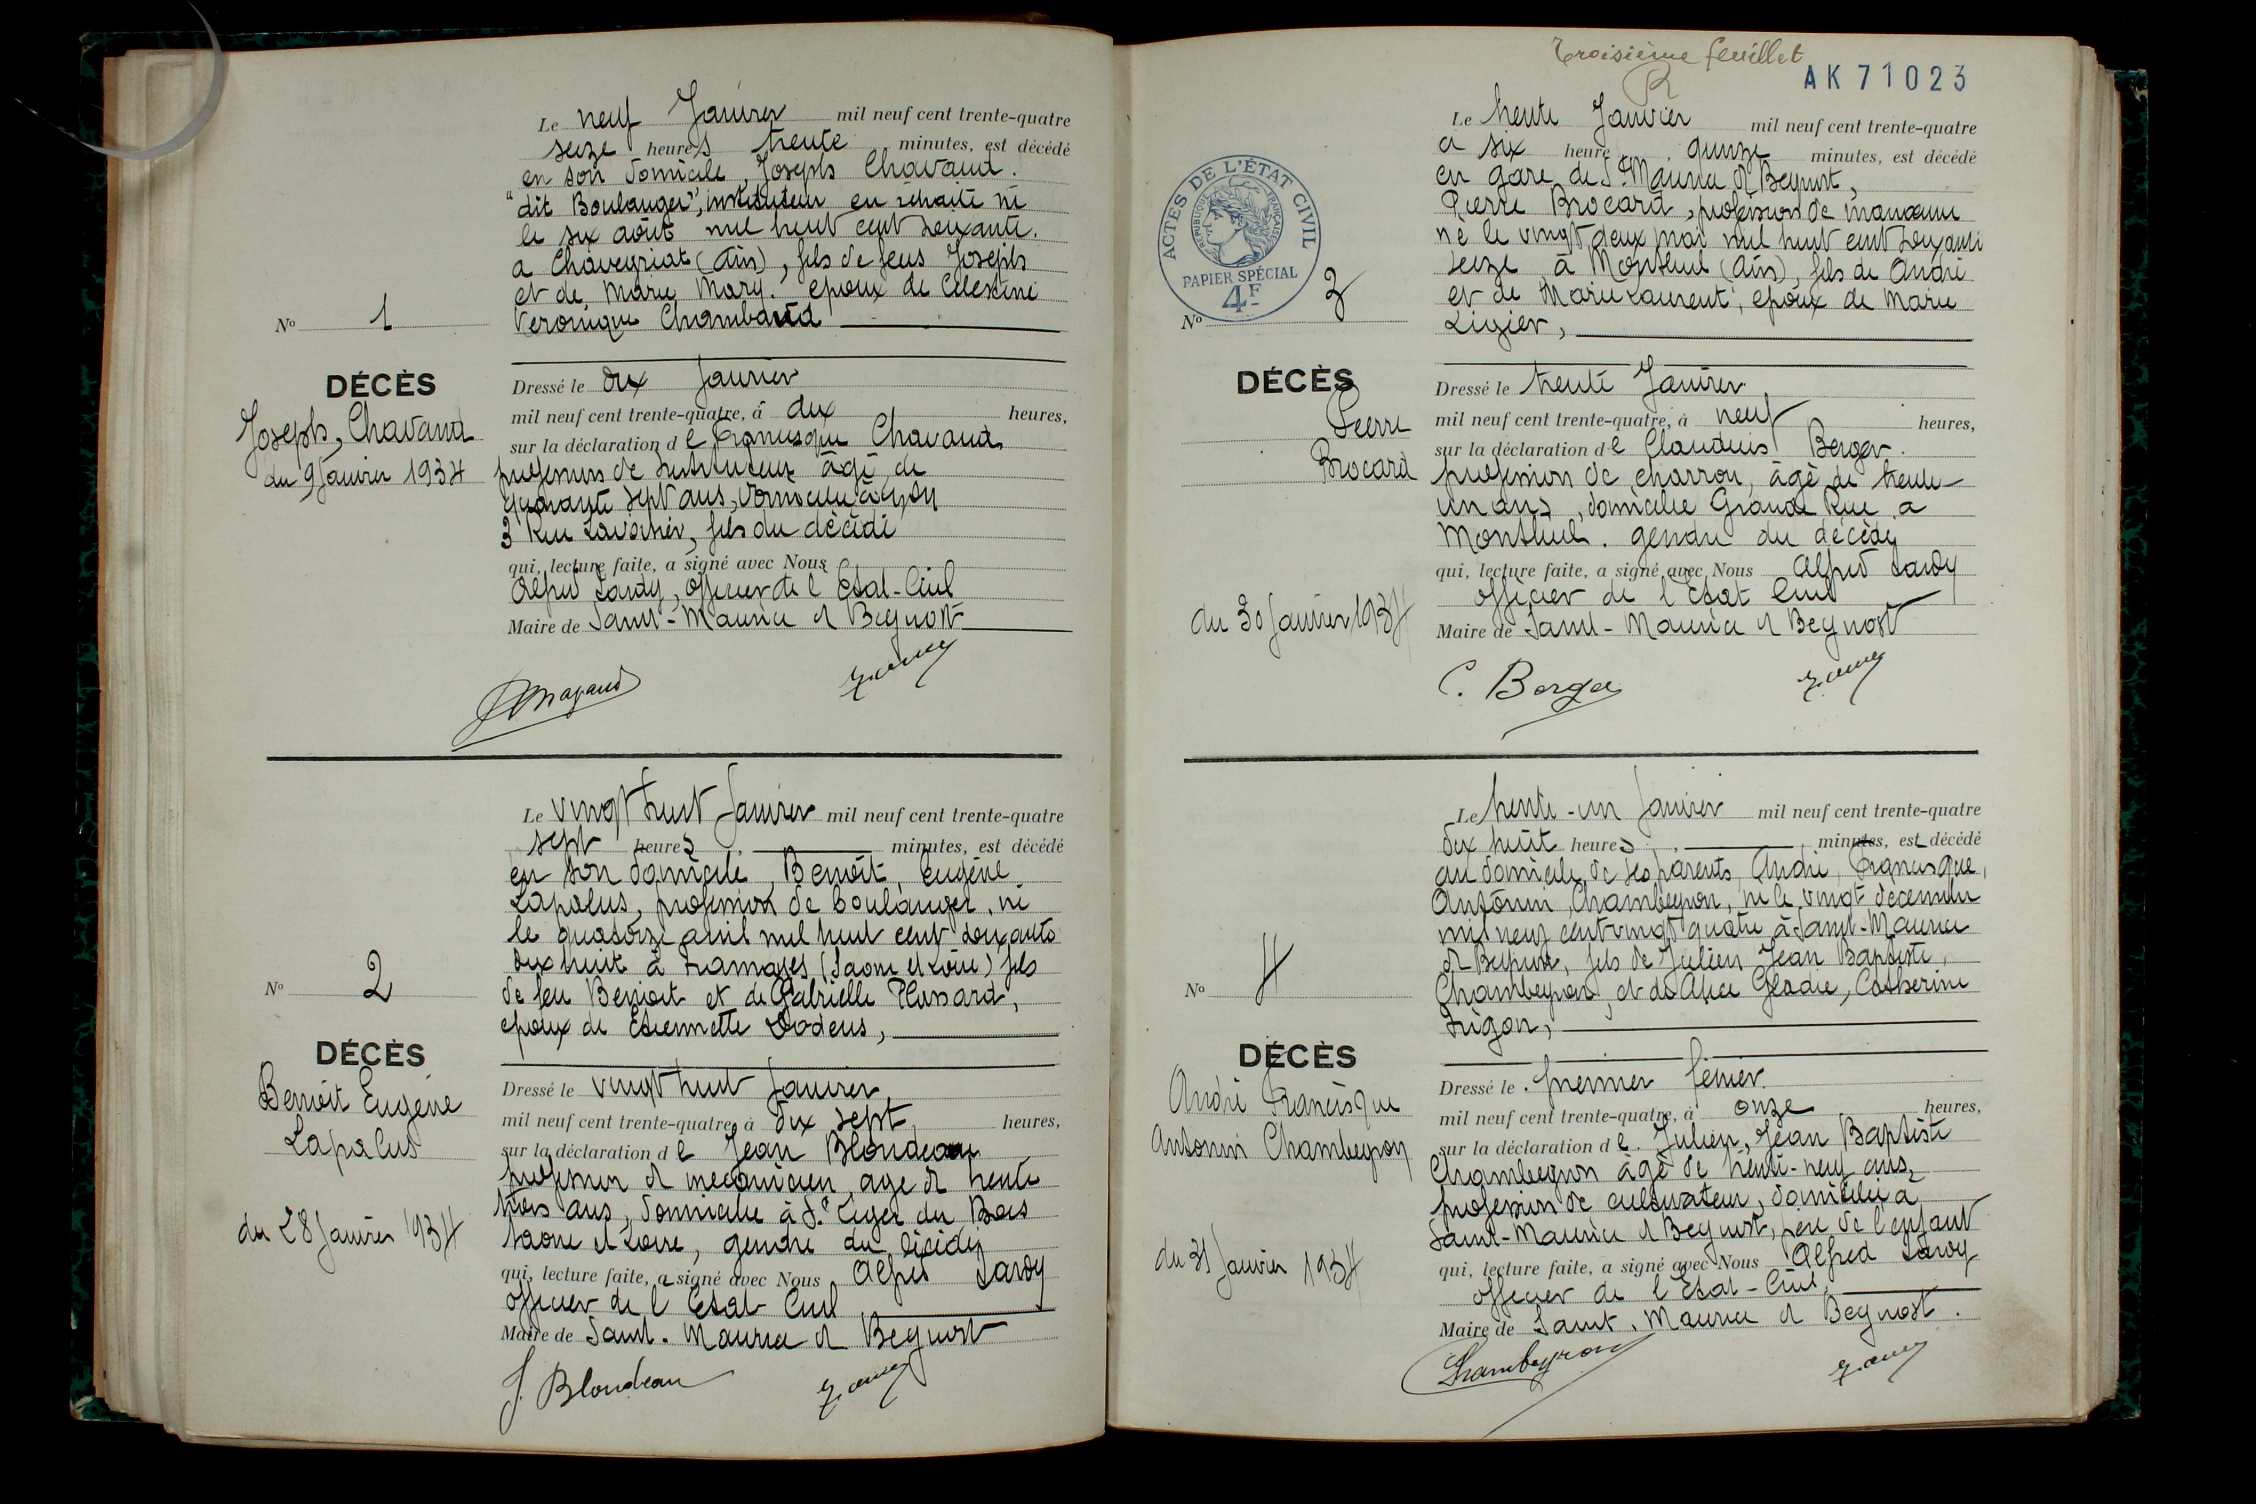 Le neuf Janvier mil neuf cent trente-quatre
seize heures trente minutes, est décédé
en son domicile, Joseph Chavand.
"dit Boulanger", instituteur en retraite né
le six août mil huit cent soixante.
a Chaveyriat (Ain), fils de feus Joseph
et de Marie Mary. époux de Célestine
Veronique Chambard
No 1
DÉCÈS
Joseph, Chavand
du 9 Janvier 1934
Dressé le dix Janvier
mil neuf cent trente-quatre, à dix heures,
sur la déclaration de Francisque Chavand
profession de Instituteur âgé de
quarante sept ans, domicilié à Lyon
3 Rue Lavoisier, fils du décédé
qui, lecture faite, a signé avec Nous
Alfred Lardy, officier de l'Etat-Civil
Maire de Saint-Maurice d Beynost
Le vingt huit Janvier mil neuf cent trente-quatre
sept heures minutes, est décédé
en son domicile, Benoît, Eugène
Lapalus, profession de boulanger, né
le quatorze avril mil huit cent soixante
dix huit à Tramayes (Saone et Loire) fils
de feu Benoit et de Gabrielle Plassard,
époux de Etiennette Dodeus,
No 2
DÉCÈS
Benoît Eugène
Lapalus
du 28 Janvier 1934
Dressé le vingt huit Janvier
mil neuf cent trente-quatre, à dix sept heures,
sur la déclaration de Jean Blondeau
profession d mécanicien, age d trente
trois ans, domicilié à St Leger du Bois
Saone et Loire, gendre du décédé
qui, lecture faite, a signé avec Nous Alfred Lardy
officier de l'Etat Civil
Maire de Saint-Maurice d Beynost
J. Blondeau
Troisième feuillet
AK 71023
ACTES DE L'ÉTAT CIVIL
RÉPUBLIQUE FRANÇAISE
PAPIER SPÉCIAL
4F
Le trente Janvier mil neuf cent trente-quatre
a six heure quinze minutes, est décédé
en gare de St Maurice d Beynost,
Pierre Brocard, profession de manœuvre
né le vingt deux mai mil huit cent soixante
seize à Montluel (Ain), fils de André
et de Marie Laurent, époux de Marie
Ligier,
No 3
DÉCÈS
Pierre
Brocard
du 30 Janvier 1934
Dressé le trente Janvier
mil neuf cent trente-quatre, à neuf heures,
sur la déclaration de Claudius Berger.
profession de charron, âgé de trente-
un ans, domicilié Grande Rue a
Montluel. gendre du décédé
qui, lecture faite, a signé avec Nous Alfred Lardy
officier de l'Etat Civil
Maire de Saint-Maurice d Beynost
C. Berger
Le trente-un Janvier mil neuf cent trente-quatre
dix huit heures minutes, est décédé
au domicile de ses parents, André, Francisque,
Antonin, Chambeyron, né le vingt décembre
mil neuf cent vingt quatre à Saint-Maurice
d Beynost, fils de Julien Jean Baptiste,
Chambeyron, et de Alice Gladie, Catherine
Trigon,
No 4
DÉCÈS
André Francisque
Antonin Chambeyron
du 31 Janvier 1934
Dressé le premier février
mil neuf cent trente-quatre, à onze heures,
sur la déclaration de Julien, Jean Baptiste
Chambeyron âgé de trente-neuf ans,
profession de cultivateur, domicilié à
Saint-Maurice d Beynost, père de l'enfant
qui, lecture faite, a signé avec Nous Alfred Lardy
officier de l'Etat-Civil
Maire de Saint-Maurice d Beynost.
Chambeyron